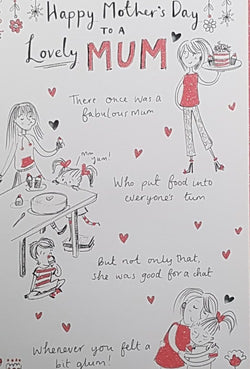 Happy Mother's Day
TO A
Lovely MUM
There once was a
fabulous mum
mm
yum!
Who put food into
everyone's tum
But not only that,
she was good for a chat
Whenever you felt a
bit glum!